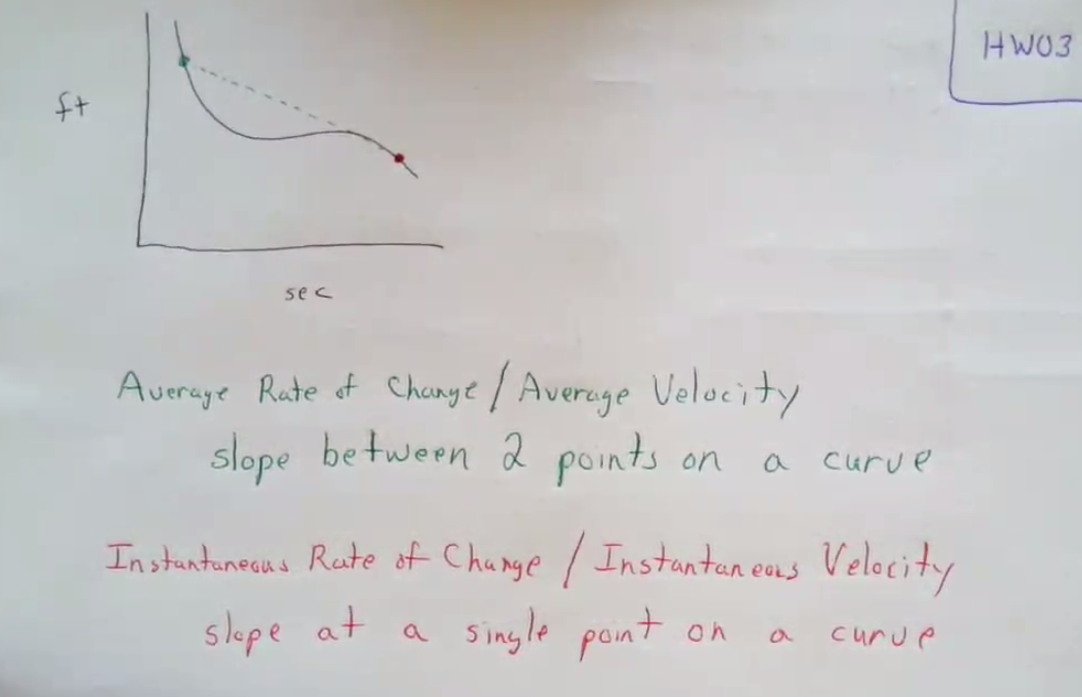 HW03
ft
sec
Average Rate of Change / Average Velocity
slope between 2 points on a curve
Instantaneous Rate of Change / Instantaneous Velocity
slope at a single point on a curve